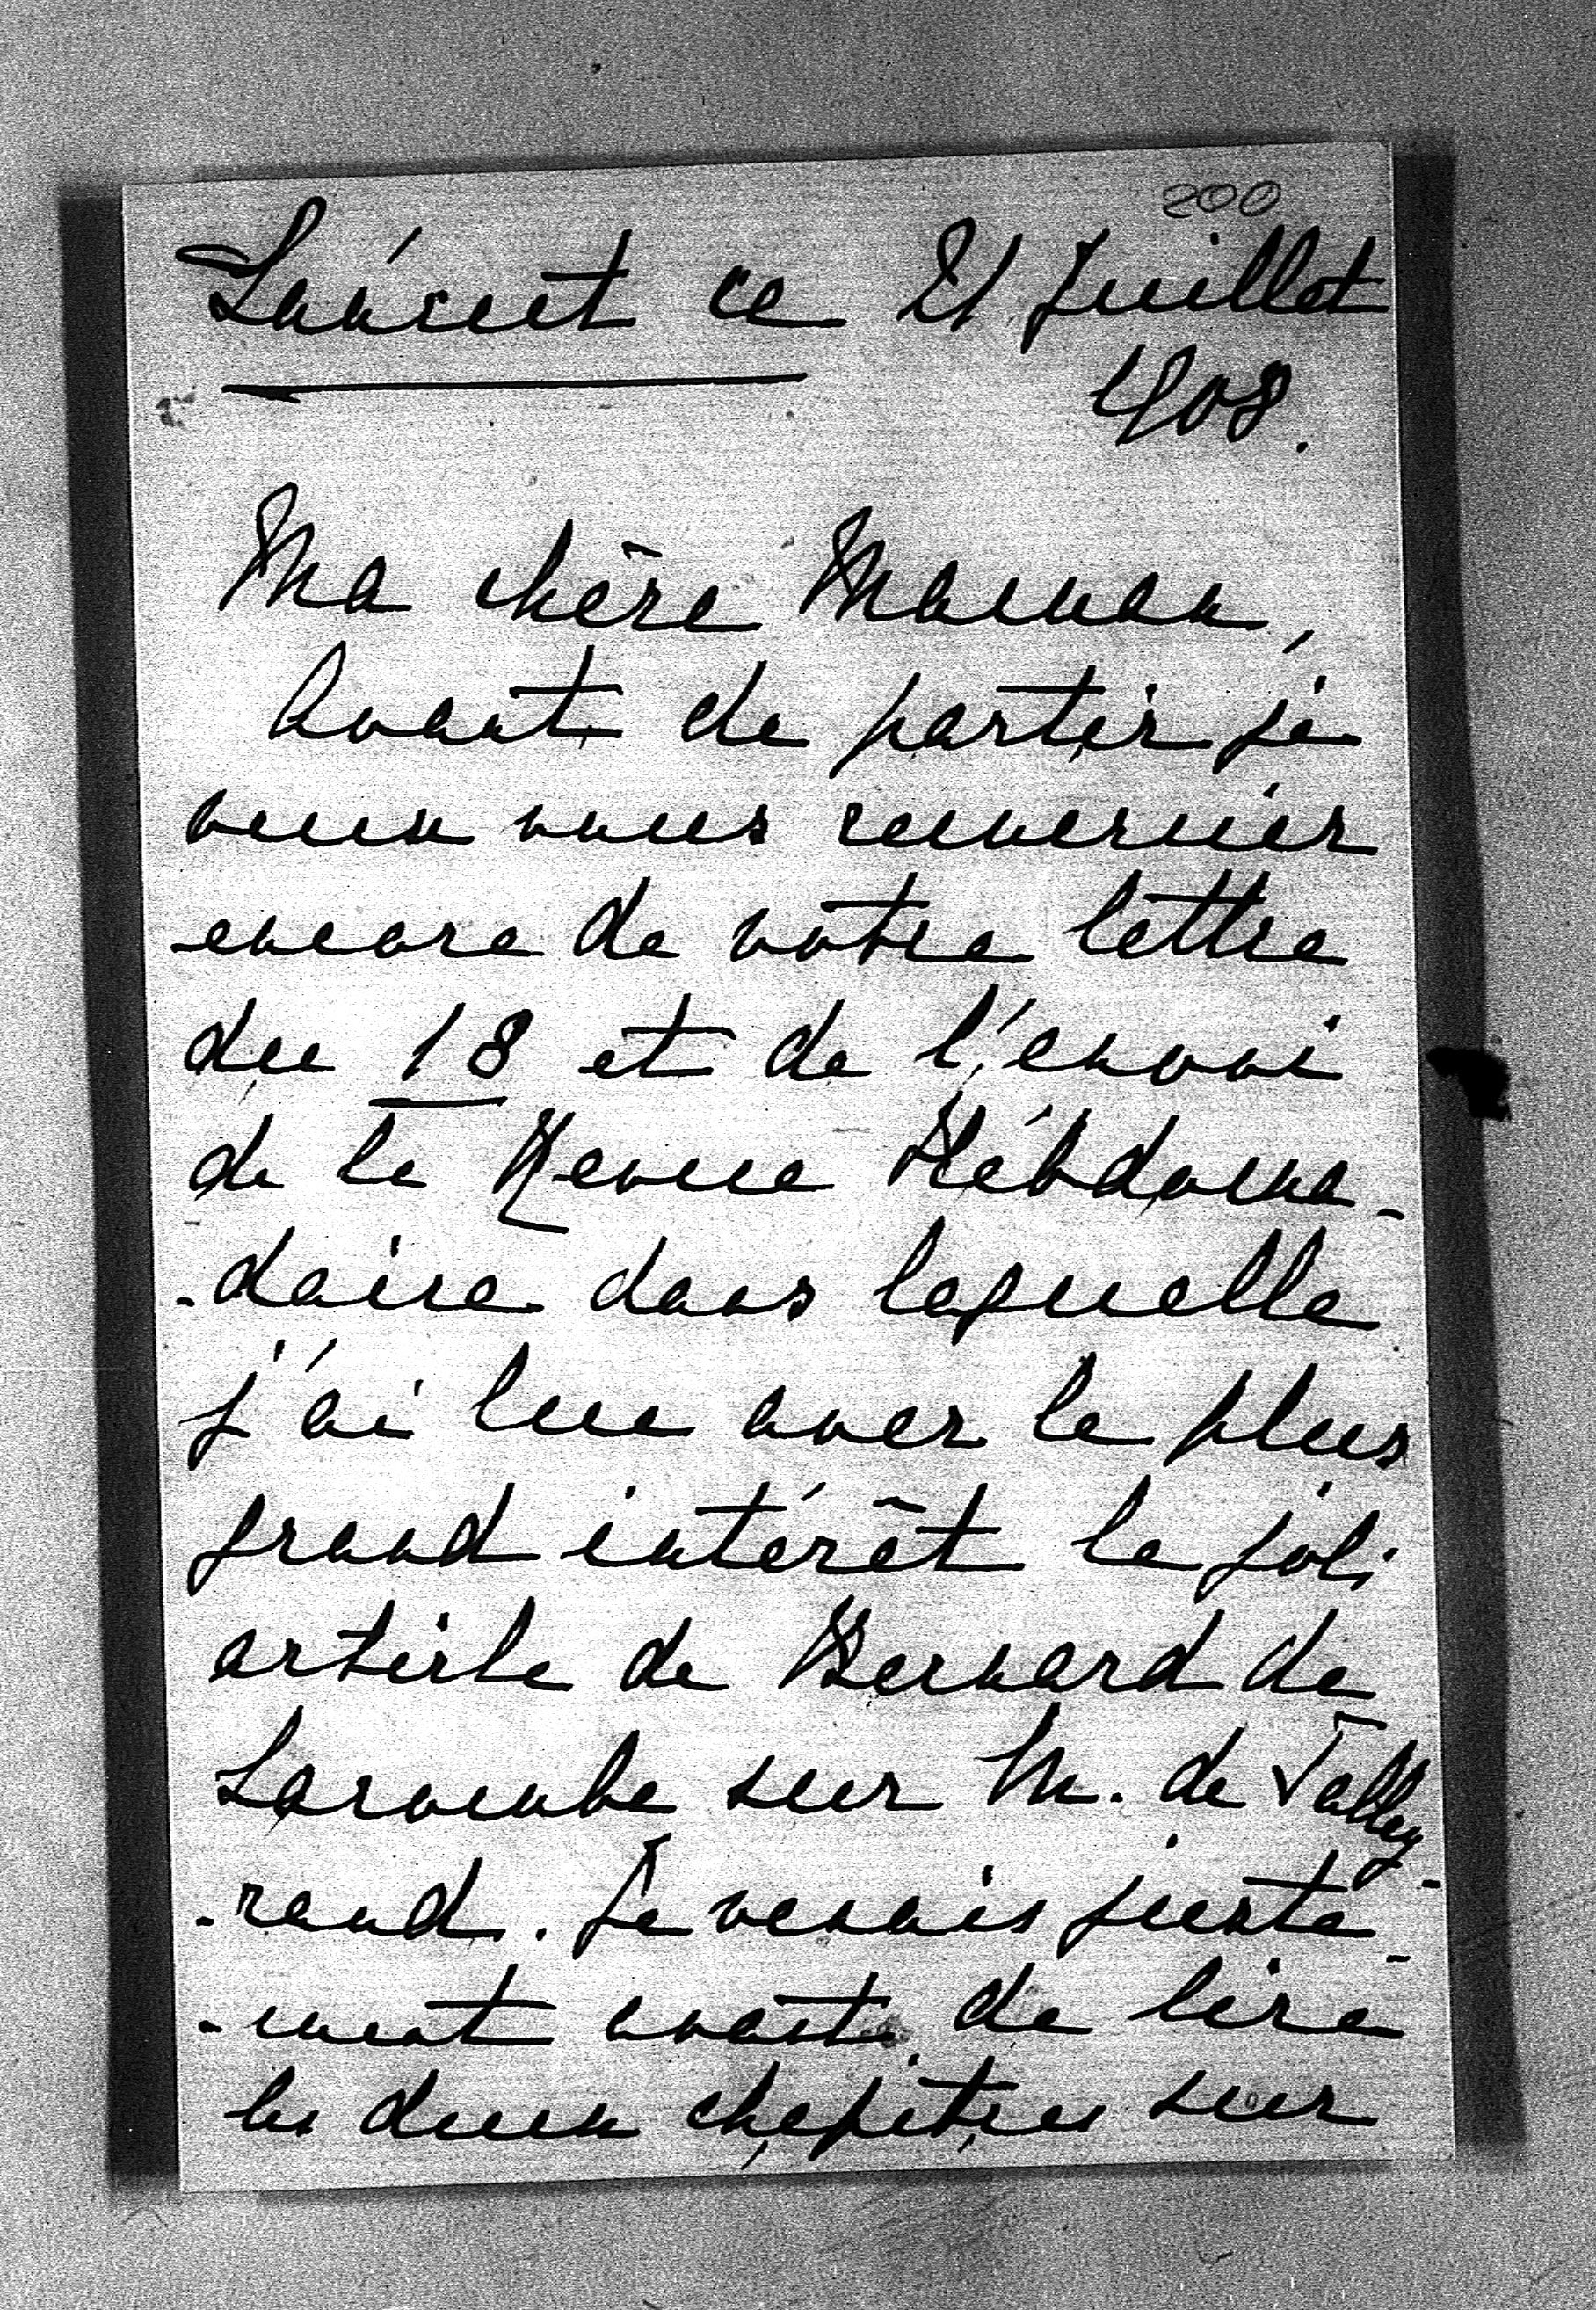 200
ce 21 Juillet
1908.
Ma chère Maman,
Avant de partir je
veux vous remercier
encore de votre lettre
du 18 et de l'envoi
de la Revue Hébdoma-
-daire dans laquelle
j'ai lue avec le plus
grand intérêt le joli
article de Bernard de
Lacombe sur M. de Talley-
-rand. Je venais juste-
-ment avant de lire
les deux chapitres sur